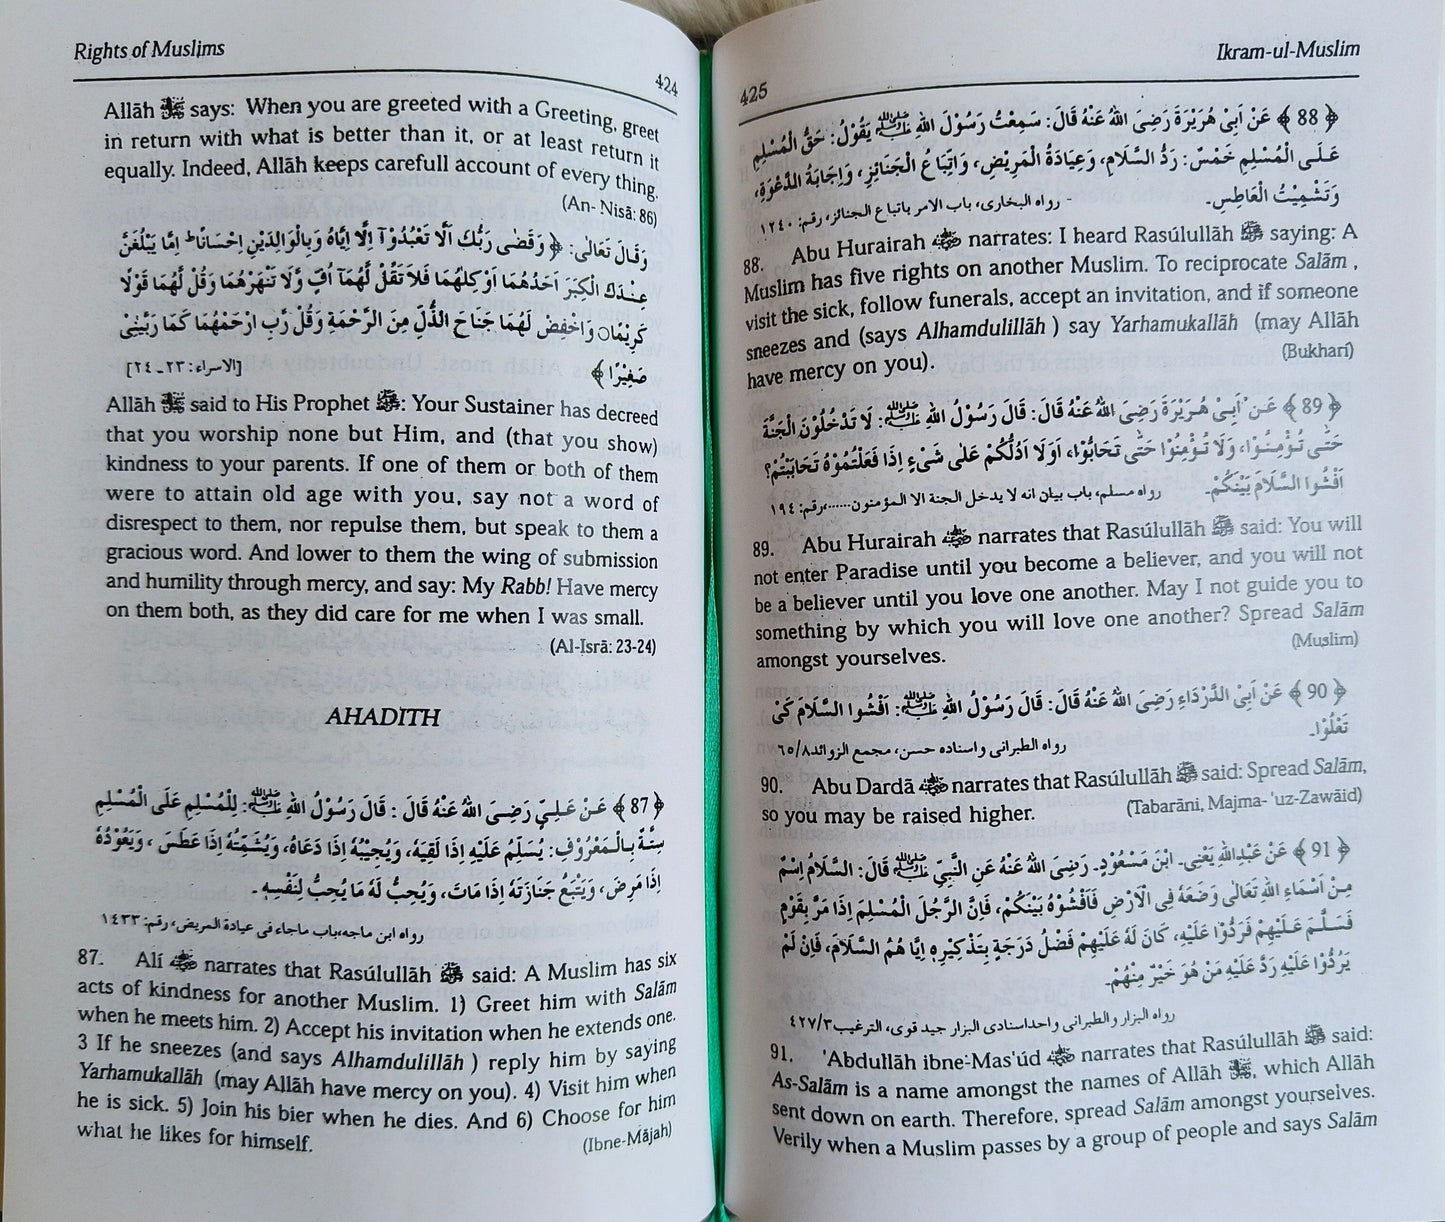 Rights of Muslims
424
Allāh ﷻ says: When you are greeted with a Greeting, greet
in return with what is better than it, or at least return it
equally. Indeed, Allāh keeps carefull account of every thing.
(An- Nisā: 86)
وَقَالَ تَعَالٰى: ﴿ وَقَضٰى رَبُّكَ اَلَّا تَعْبُدُوْٓا اِلَّآ اِيَّاهُ وَبِالْوَالِدَيْنِ اِحْسَانًا ؕ اِمَّا يَبْلُغَنَّ
عِنْدَكَ الْكِبَرَ اَحَدُهُمَا اَوْ كِلٰهُمَا فَلَا تَقُلْ لَّهُمَآ اُفٍّ وَّلَا تَنْهَرْهُمَا وَقُلْ لَّهُمَا قَوْلًا
كَرِيْمًا○ وَاخْفِضْ لَهُمَا جَنَاحَ الذُّلِّ مِنَ الرَّحْمَةِ وَقُلْ رَّبِّ ارْحَمْهُمَا كَمَا رَبَّيٰنِىْ
صَغِيْرًا ﴾ [الاسراء: ٢٣ـ٢٤]
Allāh ﷻ said to His Prophet ﷺ: Your Sustainer has decreed
that you worship none but Him, and (that you show)
kindness to your parents. If one of them or both of them
were to attain old age with you, say not a word of
disrespect to them, nor repulse them, but speak to them a
gracious word. And lower to them the wing of submission
and humility through mercy, and say: My Rabb! Have mercy
on them both, as they did care for me when I was small.
(Al-Isrā: 23-24)
AHADITH
﴿ 87 ﴾ عَنْ عَلِيٍّ رَضِيَ اللّٰهُ عَنْهُ قَالَ : قَالَ رَسُوْلُ اللّٰهِ ﷺ: لِلْمُسْلِمِ عَلَى الْمُسْلِمِ
سِتَّةٌ بِالْمَعْرُوْفِ: يُسَلِّمُ عَلَيْهِ اِذَا لَقِيَهُ، وَيُجِيْبُهُ اِذَا دَعَاهُ، وَيُشَمِّتُهُ اِذَا عَطَسَ ، وَيَعُوْدُهُ
اِذَا مَرِضَ، وَيَتْبَعُ جَنَازَتَهُ اِذَا مَاتَ، وَيُحِبُّ لَهُ مَا يُحِبُّ لِنَفْسِهِ.
رواه ابن ماجه،باب ماجاء فى عيادة المريض، رقم: ١٤٣٣
87. Alí ؓ narrates that Rasúlullāh ﷺ said: A Muslim has six
acts of kindness for another Muslim. 1) Greet him with Salām
when he meets him. 2) Accept his invitation when he extends one.
3 If he sneezes (and says Alhamdulillāh ) reply him by saying
Yarhamukallāh (may Allāh have mercy on you). 4) Visit him when
he is sick. 5) Join his bier when he dies. And 6) Choose for him
what he likes for himself.
(Ibne-Mājah)
Ikram-ul-Muslim
425
﴿ 88 ﴾ عَنْ اَبِىْ هُرَيْرَةَ رَضِىَ اللّٰهُ عَنْهُ قَالَ: سَمِعْتُ رَسُوْلَ اللّٰهِ ﷺ يَقُوْلُ: حَقُّ الْمُسْلِمِ
عَلَى الْمُسْلِمِ خَمْسٌ: رَدُّ السَّلَامِ، وَعِيَادَةُ الْمَرِيْضِ، وَاتِّبَاعُ الْجَنَائِزِ، وَاِجَابَةُ الدَّعْوَةِ،
وَتَشْمِيْتُ الْعَاطِسِ۔ رواه البخارى، باب الامر باتباع الجنائز، رقم: ١٢٤٠
88. Abu Hurairah ؓ narrates: I heard Rasúlullāh ﷺ saying: A
Muslim has five rights on another Muslim. To reciprocate Salām ,
visit the sick, follow funerals, accept an invitation, and if someone
sneezes and (says Alhamdulillāh ) say Yarhamukallāh (may Allāh
have mercy on you).
(Bukharí)
﴿ 89 ﴾ عَنْ اَبِىْ هُرَيْرَةَ رَضِىَ اللّٰهُ عَنْهُ قَالَ: قَالَ رَسُوْلُ اللّٰهِ ﷺ: لَا تَدْخُلُوْنَ الْجَنَّةَ
حَتّٰى تُؤْمِنُوْا، وَلَا تُؤْمِنُوْا حَتّٰى تَحَابُّوْا، اَوَلَا اَدُلُّكُمْ عَلٰى شَىْءٍ اِذَا فَعَلْتُمُوْهُ تَحَابَبْتُمْ؟
اَفْشُوا السَّلَامَ بَيْنَكُمْ۔ رواه مسلم، باب بيان انه لا يدخل الجنة الا المؤمنون......،رقم: ١٩٤
89. Abu Hurairah ؓ narrates that Rasúlullāh ﷺ said: You will
not enter Paradise until you become a believer, and you will not
be a believer until you love one another. May I not guide you to
something by which you will love one another? Spread Salām
amongst yourselves.
(Muslim)
﴿ 90 ﴾ عَنْ اَبِى الدَّرْدَاءِ رَضِىَ اللّٰهُ عَنْهُ قَالَ: قَالَ رَسُوْلُ اللّٰهِ ﷺ: اَفْشُوا السَّلَامَ كَىْ
تَعْلُوْا۔
رواه الطبرانى واسناده حسن، مجمع الزوائد ٦٥/٨
90. Abu Dardā ؓ narrates that Rasúlullāh ﷺ said: Spread Salām,
so you may be raised higher.
(Tabarāni, Majma- 'uz-Zawāid)
﴿ 91 ﴾ عَنْ عَبْدِاللّٰهِ يَعْنِى۔ ابْنَ مَسْعُوْدٍ۔ رَضِىَ اللّٰهُ عَنْهُ عَنِ النَّبِىِّ ﷺ قَالَ: السَّلَامُ اِسْمٌ
مِنْ اَسْمَاءِ اللّٰهِ تَعَالٰى وَضَعَهُ فِى الْاَرْضِ فَاَفْشُوْهُ بَيْنَكُمْ، فَاِنَّ الرَّجُلَ الْمُسْلِمَ اِذَا مَرَّ بِقَوْمٍ
فَسَلَّمَ عَلَيْهِمْ فَرَدُّوْا عَلَيْهِ، كَانَ لَهُ عَلَيْهِمْ فَضْلُ دَرَجَةٍ بِتَذْكِيْرِهِ اِيَّا هُمُ السَّلَامَ، فَاِنْ لَمْ
يَرُدُّوْا عَلَيْهِ رَدَّ عَلَيْهِ مَنْ هُوَ خَيْرٌ مِنْهُمْ۔
رواه البزار والطبرانى واحداسنادى البزار جيد قوى، الترغيب ٤٢٧/٣
91. 'Abdullāh ibne-Mas'úd ؓ narrates that Rasúlullāh ﷺ said:
As-Salām is a name amongst the names of Allāh ﷻ, which Allāh
sent down on earth. Therefore, spread Salām amongst yourselves.
Verily when a Muslim passes by a group of people and says Salām